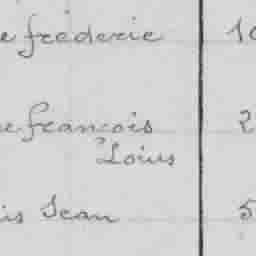 e fréderic 10
e francois 2
Loius
is Jean 5